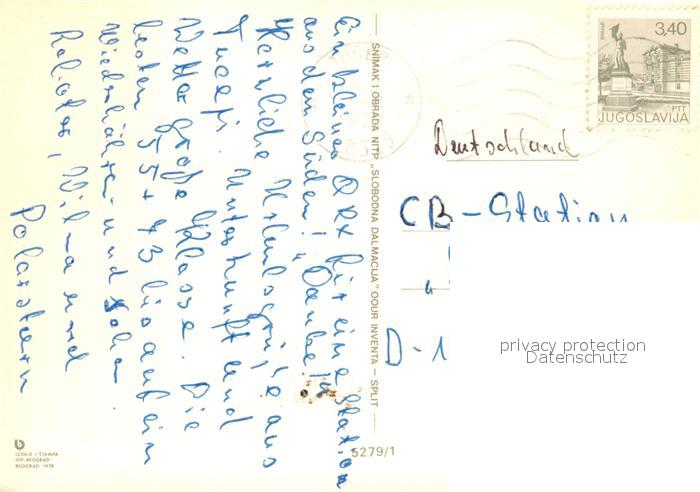 Ein kleines QRX für eine Station
aus dem Süden! "Danke!"
Herzliche Urlaubsgrüße aus
Tucepi. Unterkunft und
Wetter große Klasse. Die
besten 55 + 73 bis auf ein
Wiederhören und sehen.
Wilma und
Polarstern
SNIMAK I OBRADA NITP „SLOBODNA DALMACIJA" OOUR INVENTA – SPLIT
3,40
PTT
JUGOSLAVIJA
Deutschland
CB-Station
D-1
privacy protection
Datenschutz
5279/1
IZDAJE I ŠTAMPA
GIP „BEOGRAD"
BEOGRAD, 1978